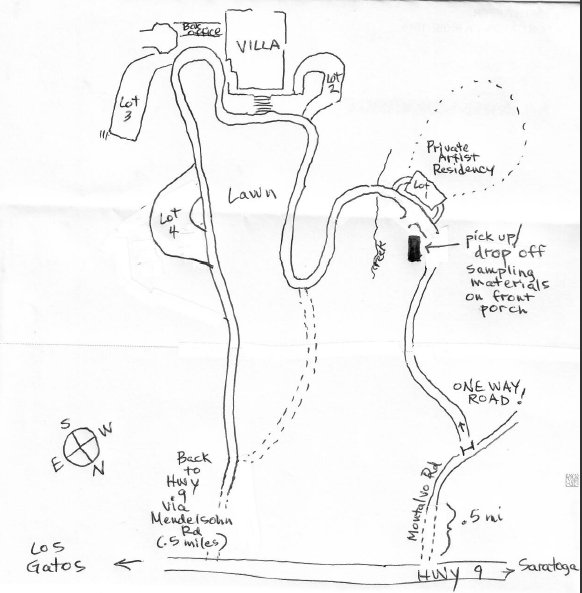 Box
office
VILLA
Lot
2
Lot
3
Private
Artist
Residency
Lot
1
Lawn
Lot
4
creek
pick up/
drop off
sampling
materials
on front
porch
ONE WAY
ROAD!
S
W
E
N
Back
to
Hwy
9
Via
Mendelsohn
Rd
(.5 miles)
Montalvo Rd
.5 mi
Los
Gatos
HWY 9
Saratoga